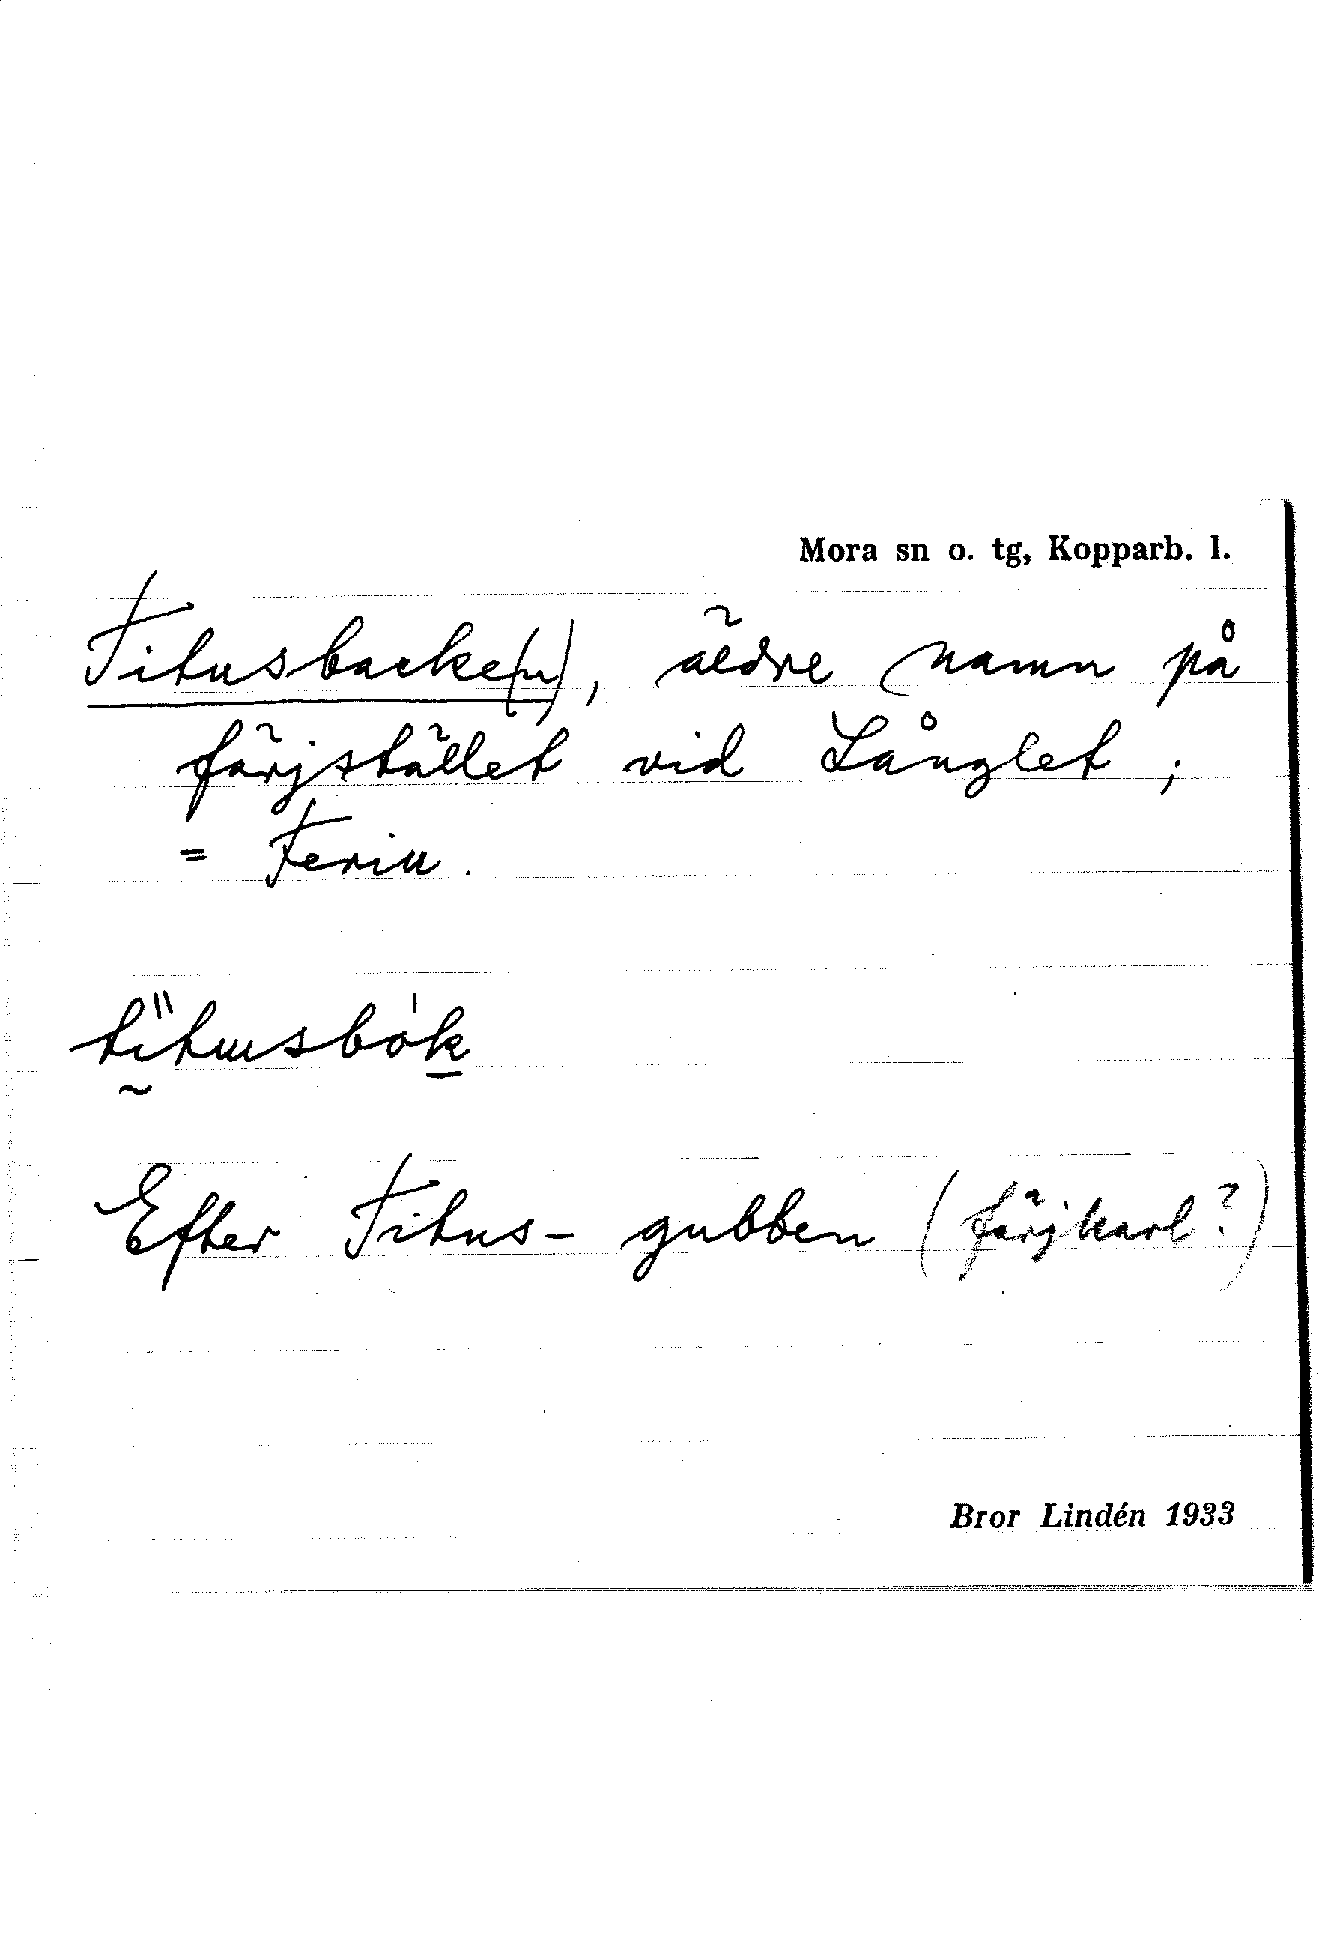 Mora sn o. tg, Kopparb. l.
Titusbacke(n), äldre namn på
färjstället vid Långlet ;
= Ferin.
titusbo̍k
Efter Titus-gubben (färjkarl?)
Bror Lindén 1933